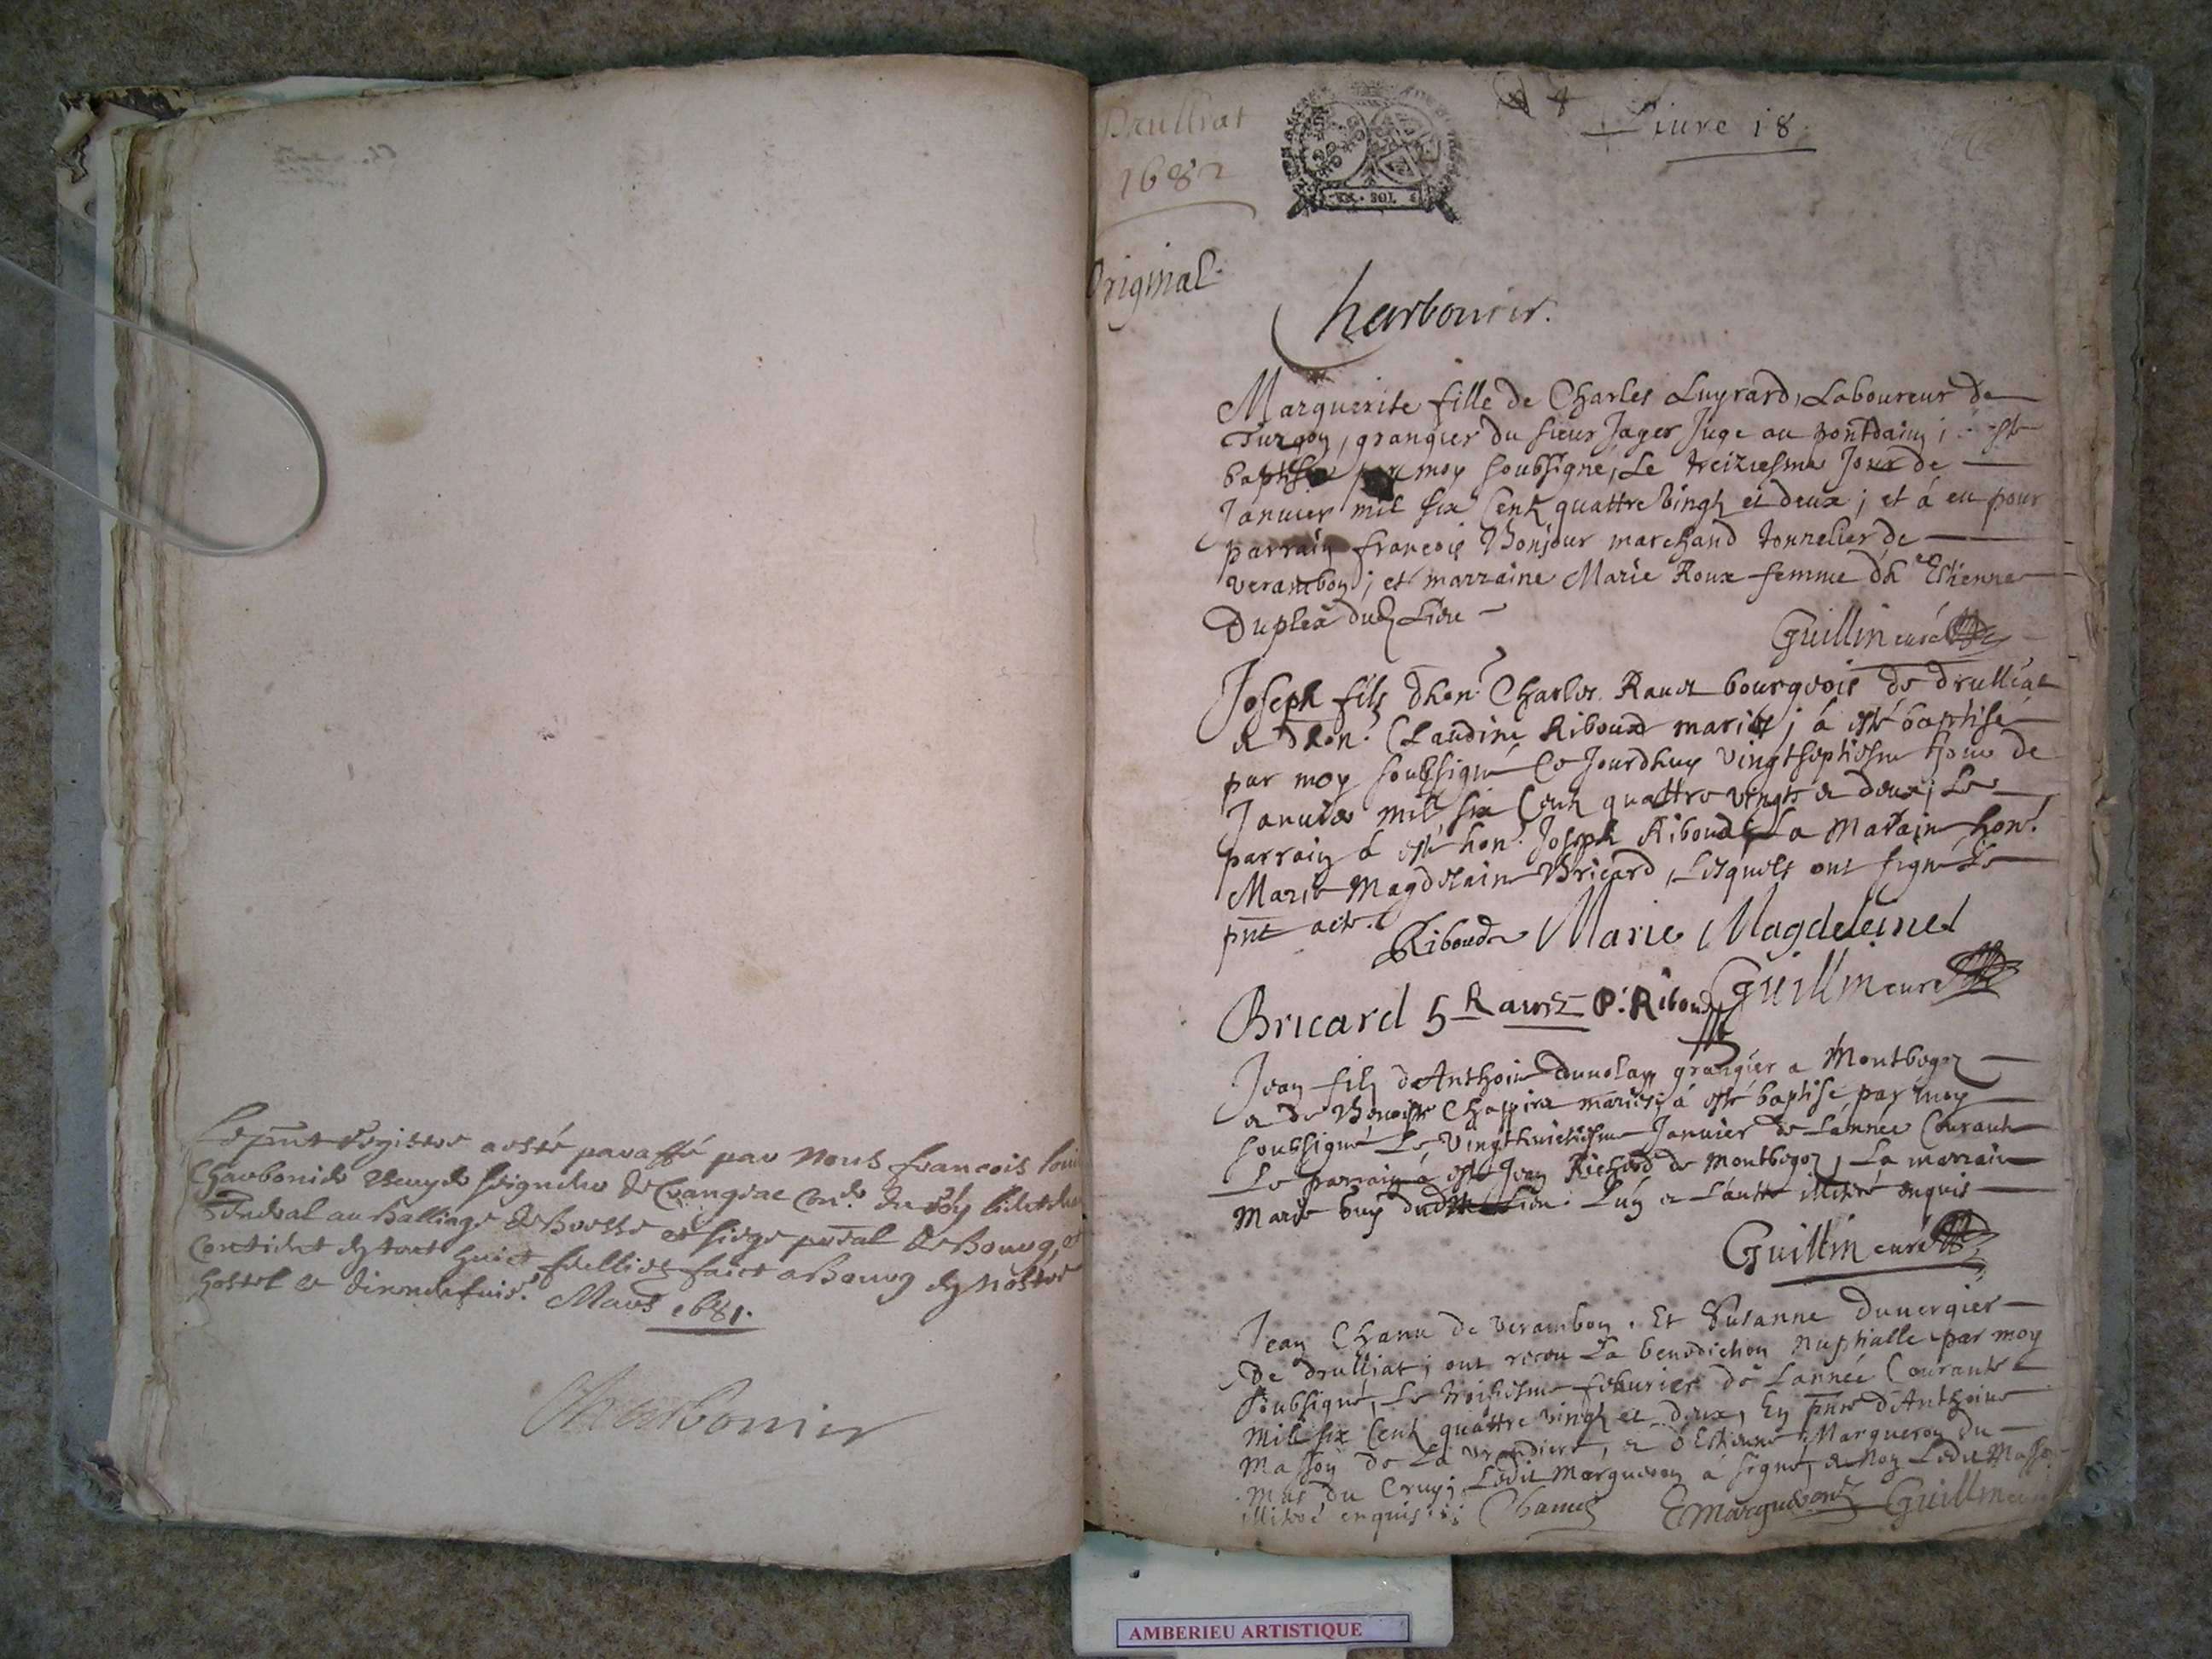 Le pnt Registre a esté paraffé par Nous francois louis
Charbonier Escuyer seigneur de Crangeac Con.er du Roy
General au Balliage de Bresse et siege pnral de Bourg, et
Contient en tout huict fuellies faict a Bourg en nostre
hostel le
Mars 1681.
Charbonier
Drulliat
1682
Livre 18
SOL
Original
Charbonier.
Marguerite fille de Charles Luyrard, Laboureur de
Turgon, grangier du sieur Jager Juge au pontdain; esté
baptisée par moy soubsigné, Le treiziesme Jour de
Januier mil six Cent quattre vingt et deux; et à eu pour
parrain françois Bonjour marchand tonnelier de
Verambon; et marraine Marie Roux femme d'h Estienne
Duplex dud Lieu
Guillin curé
Joseph fils d'hon. Charles Rauet bourgeois de drulliat
et d'hon. Claudine Riboud mariés; à esté baptisé
par moy soubsigné Ce Jourdhuy vingtseptiesme Jour de
Januier mil six Cent quattre vingts et deux; Le
parrain à esté hon. Joseph Riboud, La Maraine hon.
Marie Magdelaine Bricard, Lesquels ont signé Le
pnt acte.
Riboud Marie Magdeleine
Bricard Rauet P. Riboud Guillin curé
Jean fils de Anthoine grangier a Montbegoz
et de Benoiste Chappira mariés; à esté baptisé par moy
soubsigné Le, Vingthuictiesme Januier de L'année Courante
Le parrain à esté Jean Richard de Montbegoz, La marraine
Marie buy dud Lieu. L'un et L'autre illitéré enquis
Guillin curé
Jean Chanu de Verambon. Et Susanne Duuergier
De drulliat; ont receu La benediction Nuptialle par moy
Soubsigné, Le troisiesme feburier de L'année Courante
mil six Cent quattre vingt et deux, En pnce d'Anthoine
Masson de La Verandiere, et d'Estienne Margueron du
Mas du Cruy; Ledit Margueron à signé, et Non Ledit Masson
illitéré enquis; Chanu E Margueron Guillin
AMBERIEU ARTISTIQUE